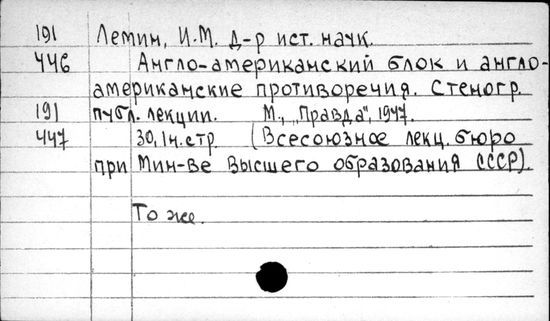 191 Лемин, И.М. д-р ист. наук.
446 Англо-американский блок и англо-
американские противоречия. Стеногр.
191 публ. лекции. М., „Правда", 1947.
447 30, 1н. стр (Всесоюзное лекц. бюро
при Мин-ве Высшего образования СССР).
То же.